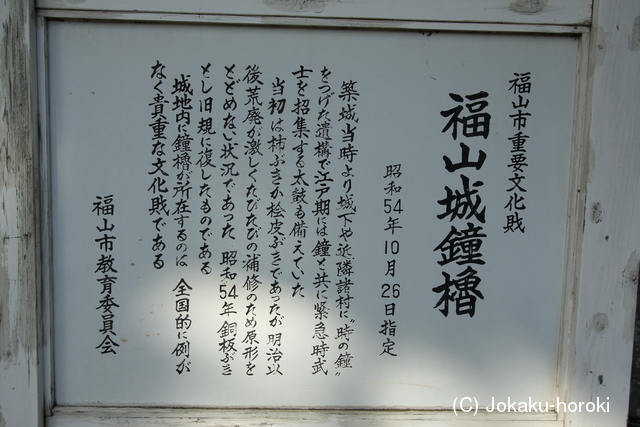 福山市重要文化財
福山城鐘櫓
昭和54年10月26日指定
築城当時より城下や近隣諸村に"時の鐘"
をつげた遺構で江戸期には鐘と共に緊急時武
士を招集する太鼓も備えていた
当初は柿ぶきか桧皮ぶきであったが明治以
後荒廃が激しくたびたびの補修のため原形を
とどめない状況であった 昭和54年銅板ぶき
とし旧規に復したものである
城地内に鐘櫓が所在するのは 全国的に例が
なく貴重な文化財である
福山市教育委員会
(C) Jokaku-horoki